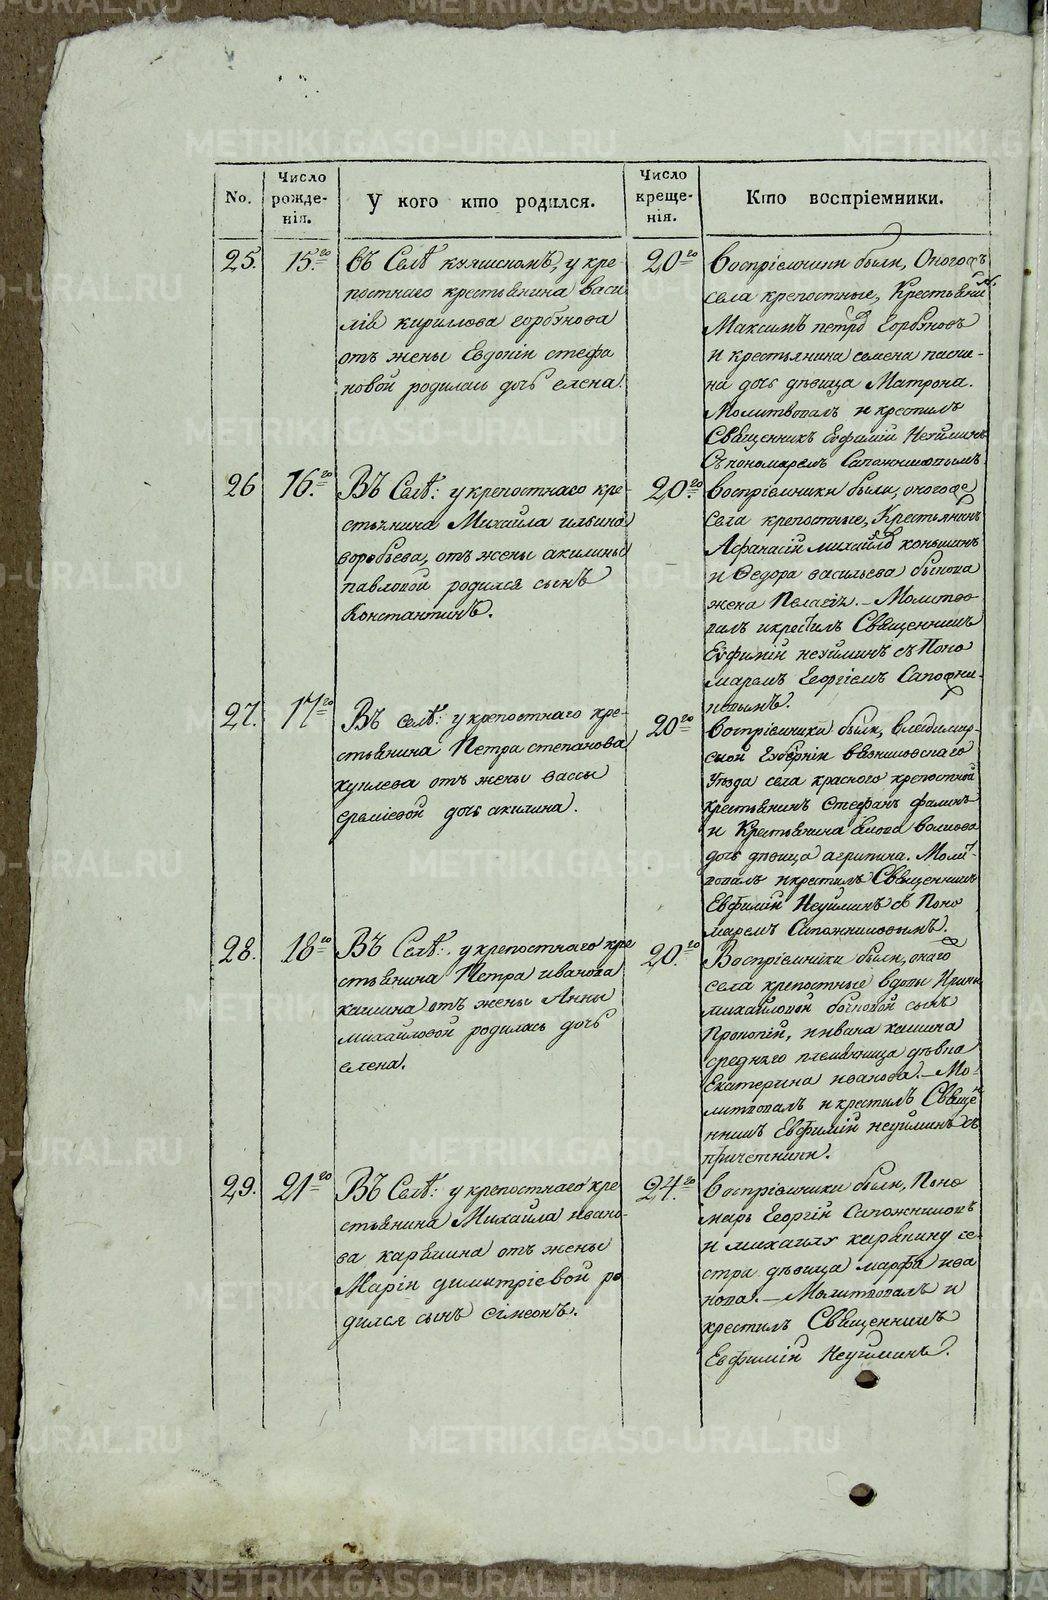 No.
Число рожденія.
У кого кто родился.
Число крещенія.
Кто воспріемники.
25.
15.го
Въ Селѣ куяшскомъ, у кре-
постнаго крестьянина васи-
лія кирилова горбунова
отъ жены Евдокіи стефа
новой родилась дочь елена.
20го
Воспріемники были, Оногожъ
села крепостные, Крестьянинъ
Максимъ петровъ Горбуновъ
и крестьянина семена
дочь дѣвица Матрона.
Молитвовалъ и крестилъ
Священникъ Евфимій Неуйминъ
Съ пономаремъ Сапожниковымъ
26
16.го
Въ Селѣ: у крепостнаго кре-
стьянина Михаила ильина
воробьева, отъ жены акилины
павловой родился сынъ
Константинъ.
20.го
Воспріемники были, оногожъ
села крепостные, Крестьянинъ
Афанасій михайловъ коньшинъ
и Ѳедора васильева быкова
жена Пелагія. – Молитво-
валъ и крестилъ Священникъ
Евфимій неуйминъ съ Поно
маремъ Георгіемъ Сапожни-
ковымъ.
27.
17го
Въ селѣ: у крепостнаго кре-
стьянина Петра степанова
отъ жены вассы
ереміевой дочь акилина.
20го
Воспріемники были, владимир-
ской Губерніи вязниковскаго
Уѣзда села красного крепостной
крестьянинъ Стефанъ
и Крестьянина
дочь дѣвица агрипина. Молит-
вовалъ и крестилъ Священникъ
Евфимій Неуйминъ съ Поно
маремъ Сапожниковымъ.
28.
18го
Въ Селѣ: у крепостнаго кре
стьянина Петра иванова
кашина отъ жены Анны
михайловой родилась дочь
елена.
20.го
Воспріемники были, оного
села крепостные вдовы Ирины
михайловой быковой сынъ
Прокопій, и ивана кашина
средняго племянница дѣвка
Екатерина иванова. – Мо-
литвовалъ и крестилъ Священ
никъ Евфимій неуйминъ съ
причетники.
29.
21го
Въ Селѣ: у крепостнаго кре
стьянина Михайла ивано-
ва каряшина отъ жены
Маріи димитріевой ро
дился сынъ Сімеонъ.
24.го
Воспріемники были, Поно
марь Георгій Сапожниковъ
и михаилу каряшину се-
стра дѣвица марфа ива
нова. – Молитвовалъ и
крестилъ Священникъ
Евфимій Неуйминъ.
METRIKI.GASO-URAL.RU